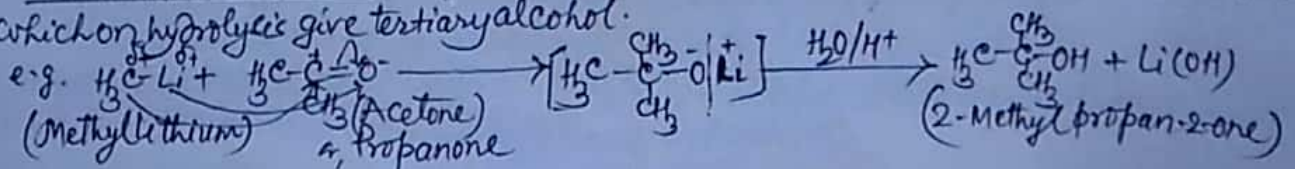 which on hydrolysis give tertiary alcohol.
e.g. H₃C^δ--Li^δ+ + H₃C-C^+(CH₃)=O⁻ → [H₃C-C(CH₃)(CH₃)-O⁻|Li⁺] H₂O/H⁺ → H₃C-C(CH₃)(CH₃)-OH + Li(OH)
(Methyllithium) (Acetone) (2-Methyl propan-2-one)
or, Propanone